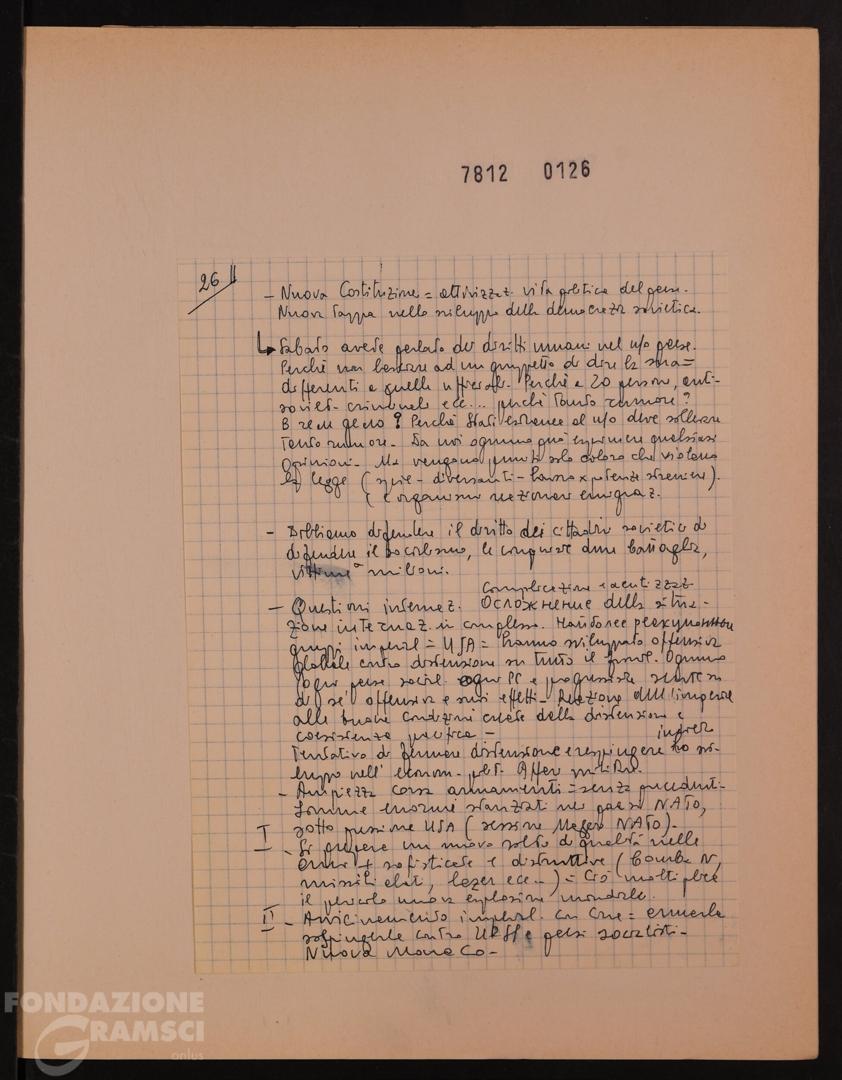 7812 0126
26
- Nuova Costituzione = attivizzaz. vita politica del paese.
Nuova tappa nello sviluppo della democrazia sovietica.
Sabato avete parlato dei diritti umani nel n/o paese.
Perché non lasciare ad un gruppetto di dire la sua =
differenti a quelle ufficiali. Perché a 20 persone, anti-
soviet. criminale ecc... perché tanto rumore?
B perché Stati esteri al n/o deve sollevare
tanto rumore. Da noi ognuno può esprimere qualsiasi
opinione. Ma vengono puniti solo coloro che violano
la legge (spie - diversanti - lavoro x potenze straniere)
(e organismi reazionari emigraz.
- Dobbiamo difendere il diritto dei cittadini sovietici di
difendere il socialismo, le conquiste dure battaglie,
vittime milioni.
Complicazione e acutizzaz.
- Questioni internaz. Осложнение della situa-
zione internaz. in complesso. Наиболее реакционные
gruppi imperial = USA = hanno sviluppato offensiva
globale contro distensione su tutto il fronte. Ognuno
ogni paese social. ogni PC e progressista sente su
di sé offensiva e suoi effetti - Reazione dell'imperial
alle buone condizioni create dalla distensione e
coesistenza pacifica -
Tentativo di fermare distensione e respingere no svi-
luppo nell' econom. polit. Affari militari.
- Ampiezza corsa armamenti = senza precedenti.
Somme enormi stanziati nei paesi NATO,
I sotto pressione USA (sessione Maggio NATO).
- Si prepara un nuovo salto di qualità nelle
armi + sofisticate e distruttive (bomba N,
missili alati, lazer ecc...) = Ciò moltiplica
il pericolo nuova esplosione mondiale.
II - Avvicinamento imperial. con Cina = armarla
sospingerla contro URSS e paesi socialisti -
Nuova Monaco -
FONDAZIONE
GRAMSCI
onlus